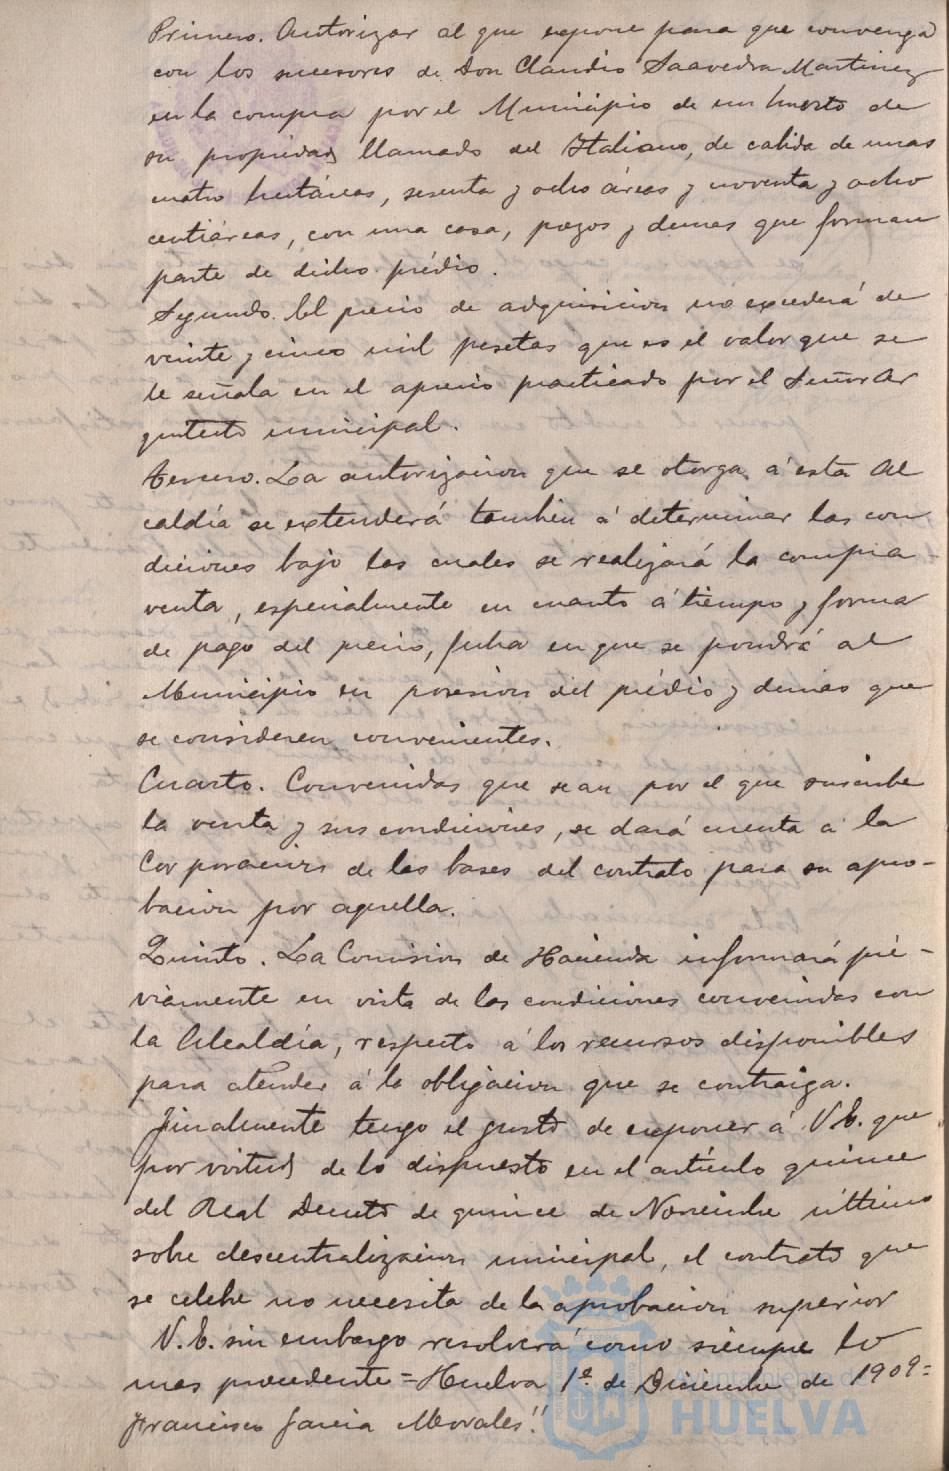 Primero. Autorizar al que expone para que convenga
con los sucesores de Don Claudio Saavedra Martinez
en la compra por el Municipio de un huerto de
su propiedad llamado del Italiano, de cabida de unas
cuatro hectáreas, sesenta y ocho áreas y noventa y ocho
centiáreas, con una casa, pozos y demas que forman
parte de dicho prédio.
Segundo. El precio de adquisicion no excederá de
veinte y cinco mil pesetas que es el valor que se
le señala en el aprecio practicado por el Señor Ar
quitecto municipal.
Tercero. La autorizacion que se otorga á esta Al
caldía se extenderá tambien á determinar las con
diciones bajo las cuales se realizará la compra
venta, especialmente en cuanto á tiempo y forma
de pago del precio, fecha en que se pondrá al
Municipio en posesion del prédio y demas que
se consideren convenientes.
Cuarto. Convenidas que sean por el que suscribe
la venta y sus condiciones, se dará cuenta á la
Corporacion de las bases del contrato para su apro-
bacion por aquella.
Quinto. La Comision de Hacienda informará pré-
viamente en vista de las condiciones convenidas con
la Alcaldía, respecto á los recursos disponibles
para atender á la obligacion que se contraiga.
Finalmente tengo el gusto de exponer á V.E. que
por virtud de lo dispuesto en el artículo quince
del Real Decreto de quince de Noviembre último
sobre descentralizacion municipal, el contrato que
se celebre no necesita de la aprobacion superior
V.E. sin embargo resolverá como siempre lo
mas procedente = Huelva 1º de Diciembre de 1909 =
Francisco Garcia Morales"
Ayuntamiento de
HUELVA